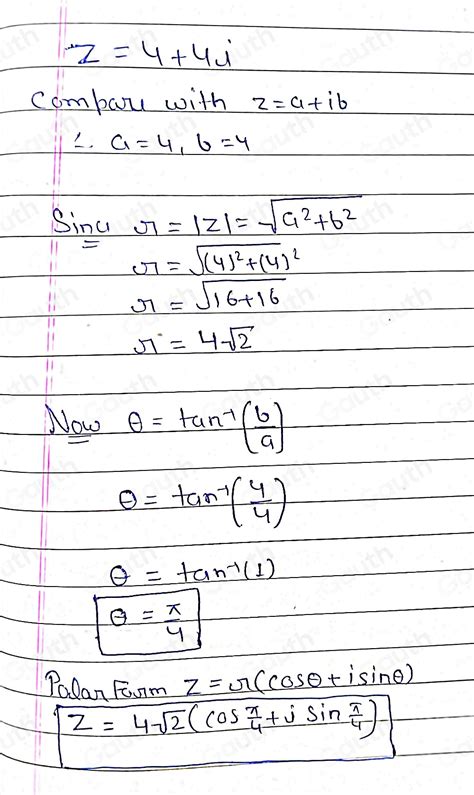 z = 4 + 4i
Compare with z = a + ib
∴ a = 4, b = 4
Since r = |z| = √(a² + b²)
r = √((4)² + (4)²)
r = √(16 + 16)
r = 4√2
Now θ = tan⁻¹(b/a)
θ = tan⁻¹(4/4)
θ = tan⁻¹(1)
θ = π/4
Polar Form z = r(cosθ + i sinθ)
z = 4√2(cos π/4 + i sin π/4)